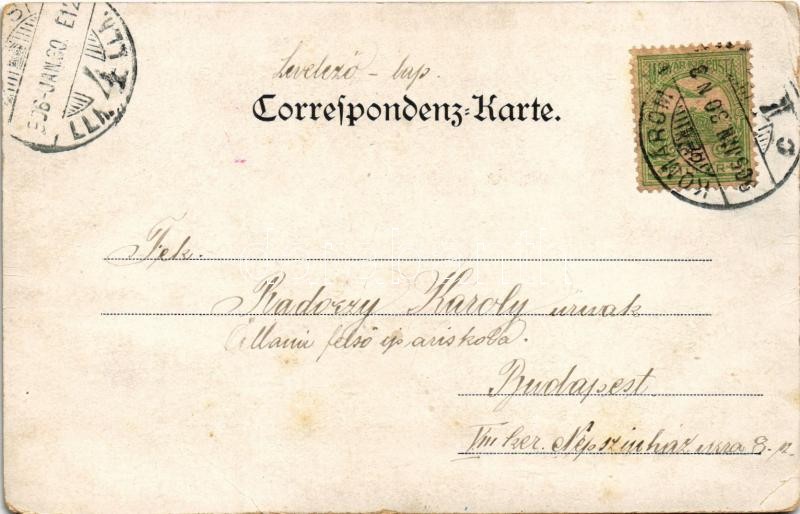 Levelező-lap.
Correspondenz-Karte.
MAGYAR KIR. POSTA
KOMÁROM
906 JAN. 30
Tek.
Radoczy Karoly urnak
Állami felső ipariskola.
Budapest
VIII ker. Népszinház utca 8.